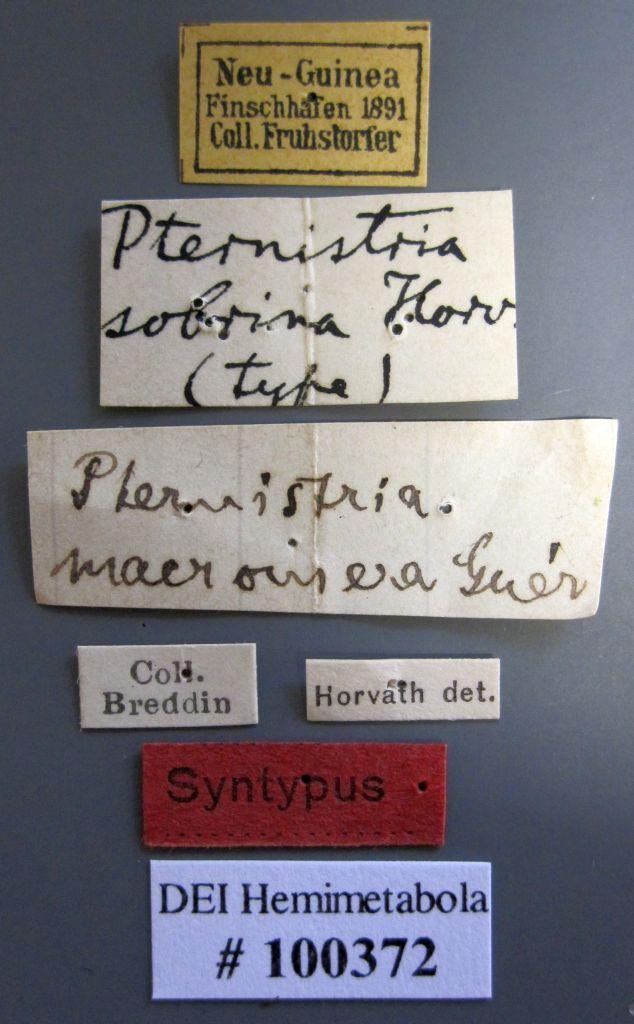 Neu-Guinea
Finschhafen 1891
Coll. Fruhstorfer
Pternistria
sobrina Horv.
(type)
Pternistria.
macromera Guér
Coll.
Breddin
Horváth det.
Syntypus
DEI Hemimetabola
# 100372